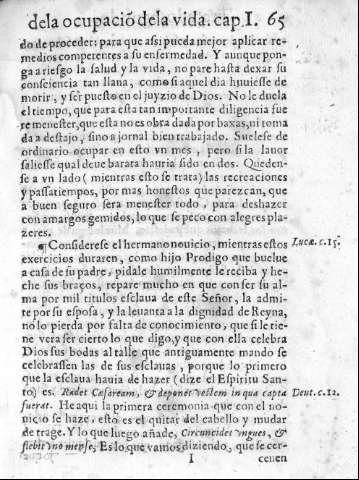 dela ocupació dela vida. cap. I. 65
do de proceder: para que assi pueda mejor aplicar re-
medios competentes a su enfermedad. Y aunque pon-
ga a riesgo la salud y la vida, no pare hasta dexar su
consciencia tan llana, como si aquel dia huuiesse de
morir, y ser puesto en el juyzio de Dios. No le duela
el tiempo, que para esta tan importante diligencia fue
re menester, que esta no es obra dada por baxas, ni toma
da a destajo, sino a jornal bien trabajado. Suelese de
ordinario ocupar en esto vn mes, pero si la lauor
saliesse qual deue barata hauria sido en dos. Queden-
se a vn lado (mientras esto se trata) las recreaciones
y passatiempos, por mas honestos que parezcan, que
a buen seguro sera menester todo, para deshazer
con amargos gemidos, lo que se peco con alegres pla-
zeres.
¶Considerese el hermano nouicio, mientras estos
exercicios duraren, como hijo Prodigo que buelue
a casa de su padre, pidale humilmente le reciba y he-
che sus braços, repare mucho en que con ser su al-
ma por mil titulos esclaua de este Señor, la admi-
te por su esposa, y la leuanta a la dignidad de Reyna,
no lo pierda por falta de conocimiento, que si le tie-
ne vera ser cierto lo que digo, y que con ella celebra
Dios sus bodas al talle que antiguamente mando se
celebrassen las de sus esclauas, porque lo primero
que la esclaua hauia de hazer (dize el Espiritu San-
to) es. Radet Cæsaream, & deponet vestem in qua capta
fuerat. He aqui la primera ceremonia que con el no-
uicio se haze, esto es el quitar del cabello y mudar
de trage. Y lo que luego añade, Circuncidet vngues, &
flebit vno mense, Es lo que vamos diziendo, que se cer-
I cenen
Lucæ. c. 15.
Deut. c. 12.